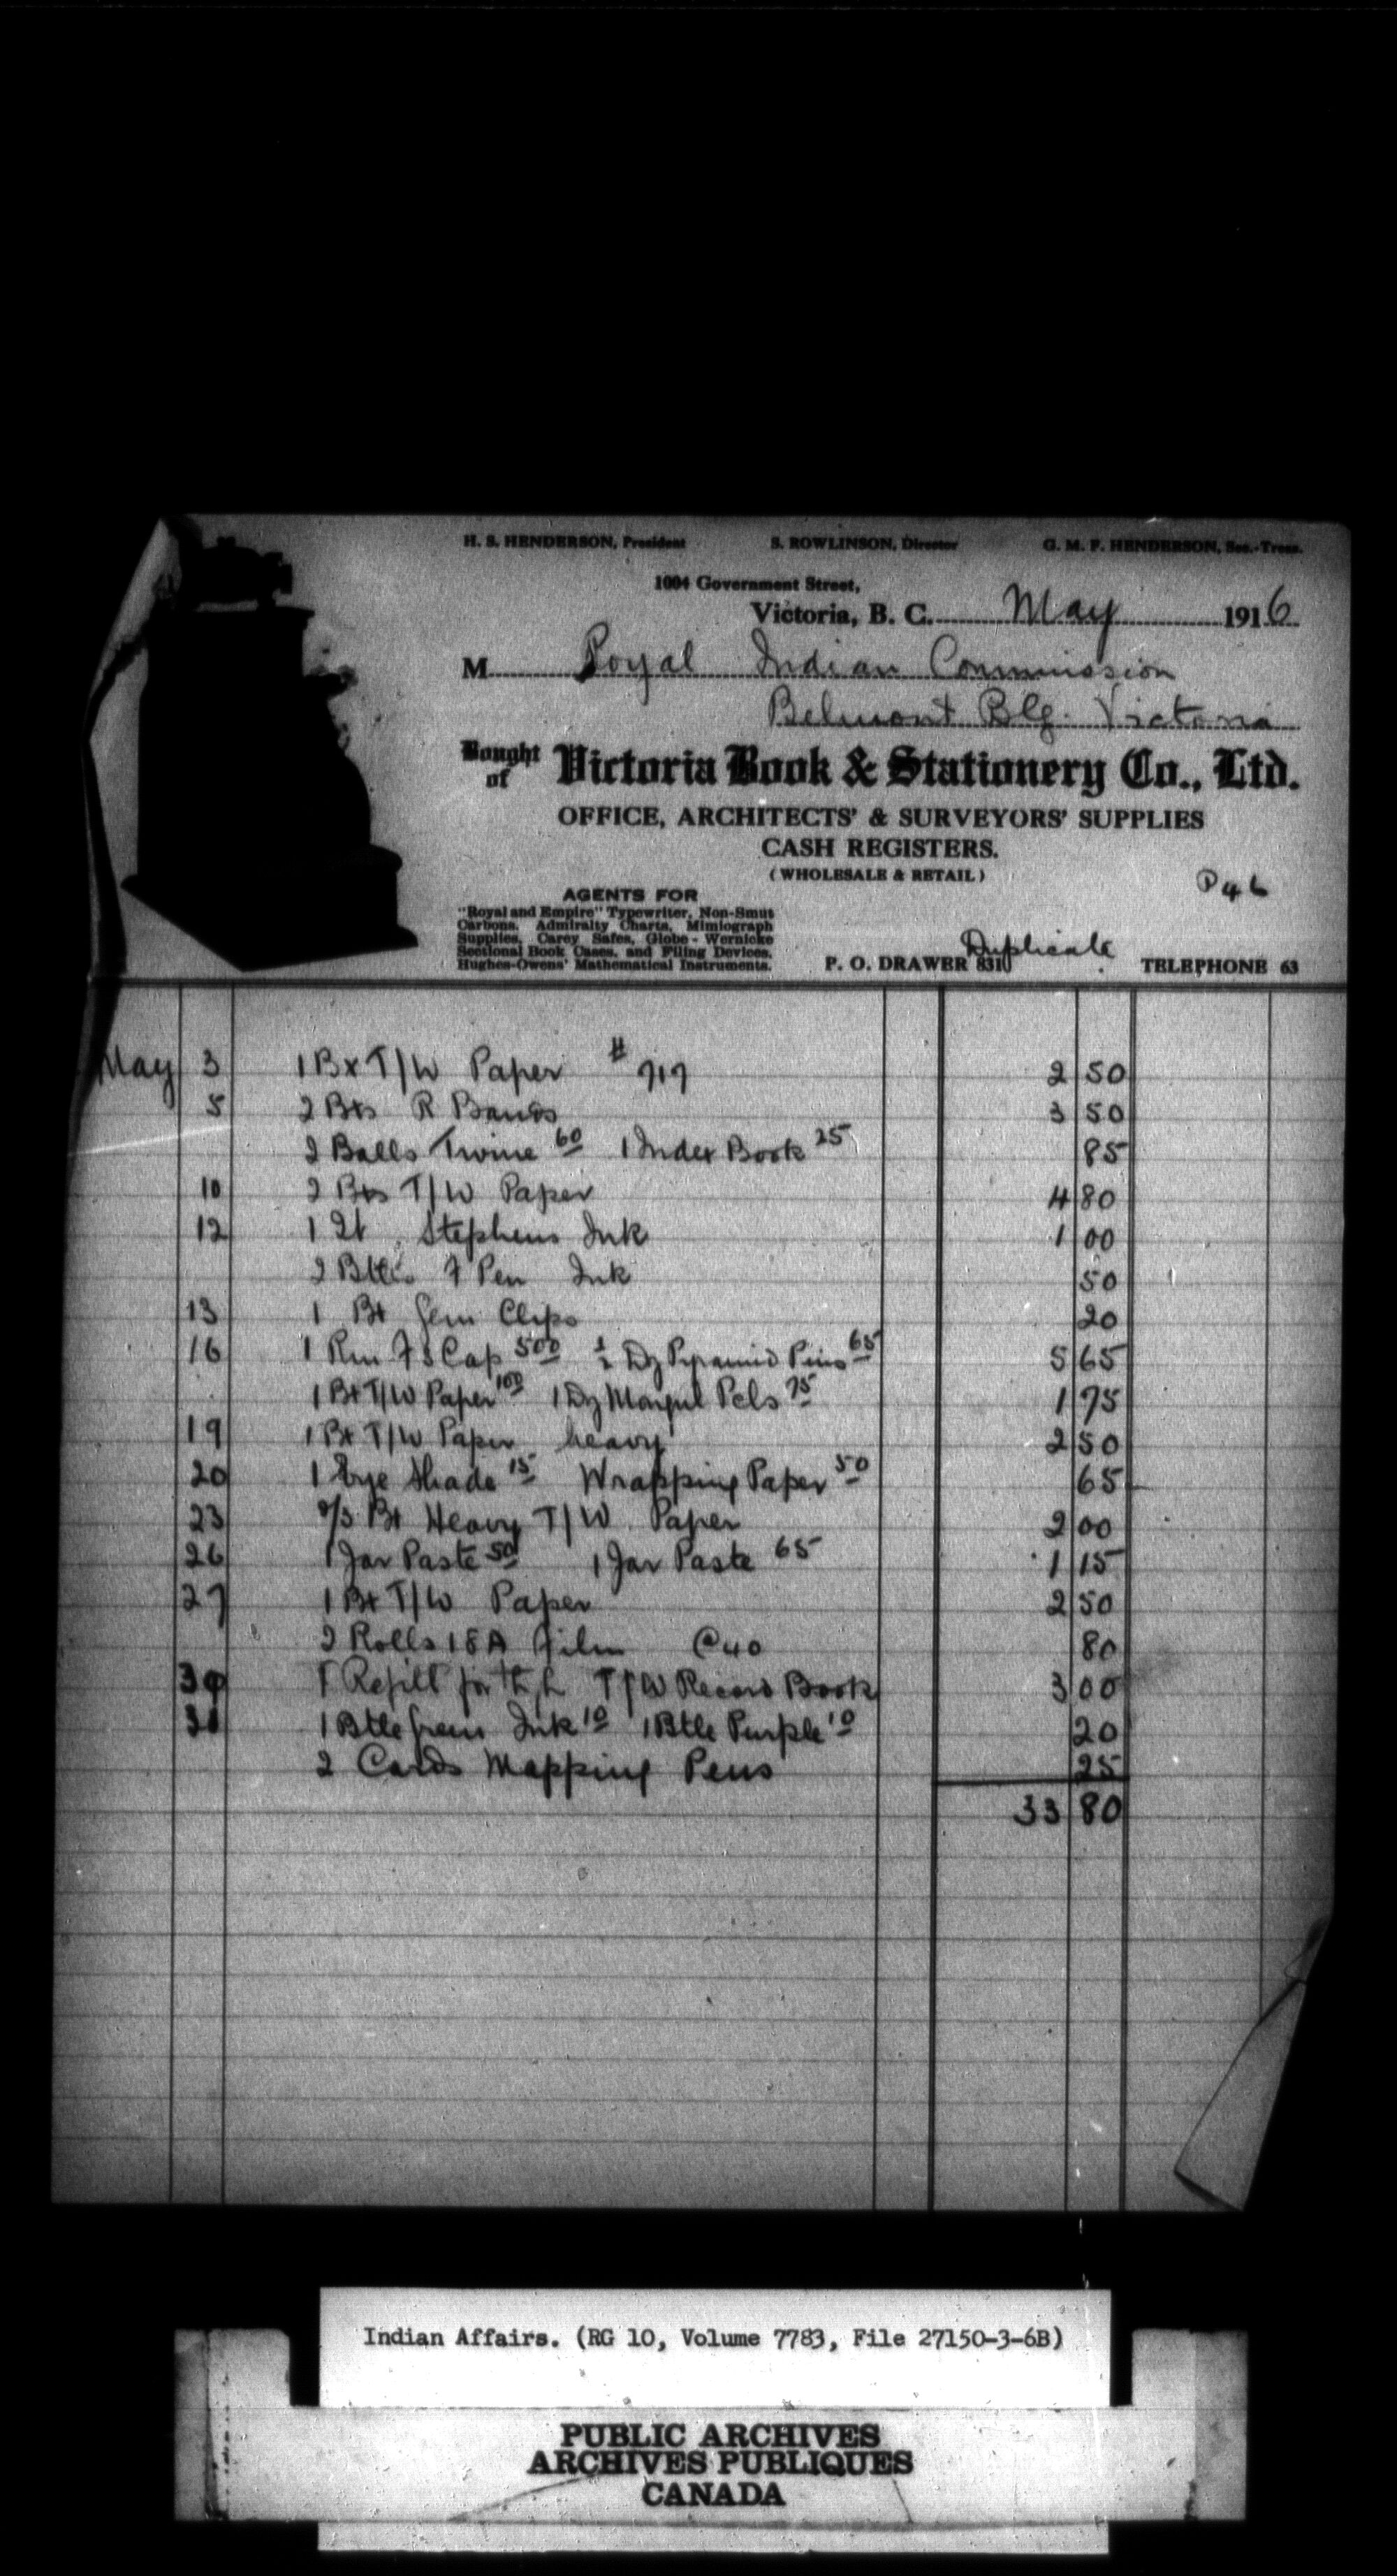 H. S. HENDERSON, President S. ROWLINSON, Director G. M. F. HENDERSON, Sec.-Treas.
1004 Government Street,
Victoria, B. C. May 1916
M Royal Indian Commission
Belmont Blg. Victoria
Bought of Victoria Book & Stationery Co., Ltd.
OFFICE, ARCHITECTS' & SURVEYORS' SUPPLIES
CASH REGISTERS.
(WHOLESALE & RETAIL)
P46
AGENTS FOR
"Royal and Empire" Typewriter, Non-Smut
Carbons, Admiralty Charts, Mimiograph
Supplies, Carey Safes, Globe-Wernicke
Sectional Book Cases, and Filing Devices,
Hughes-Owens' Mathematical Instruments.
Duplicate
P. O. DRAWER 831 TELEPHONE 63
May 3 1 Bx T/W Paper # 717 2 50
5 2 Bxs R Bands 3 50
2 Balls Twine 60 1 Index Book 25 85
10 2 Bxs T/W Paper 4 80
12 1 Qt Stephens Ink 1 00
2 Bttls F Pen Ink 50
13 1 Bx Gem Clips 20
16 1 Rm Fs Cap 500 ½ Dz Pyramid Pins 65 5 65
1 Bx T/W Paper 100 1 Dz Mongul Pcls 75 1 75
19 1 Bx T/W Paper heavy 2 50
20 1 Eye Shade 15 Wrapping Paper 50 65
23 Bx Heavy T/W Paper 2 00
26 1 Jar Paste 50 1 Jar Paste 65 1 15
27 1 Bx T/W Paper 2 50
2 Rolls 18A film @40 80
30 1 Refill for T/W Record Book 3 00
31 1 Btle Green Ink 10 1 Btle Purple 10 20
2 Cards Mapping Pens 25
33 80
Indian Affairs. (RG 10, Volume 7783, File 27150-3-6B)
PUBLIC ARCHIVES
ARCHIVES PUBLIQUES
CANADA